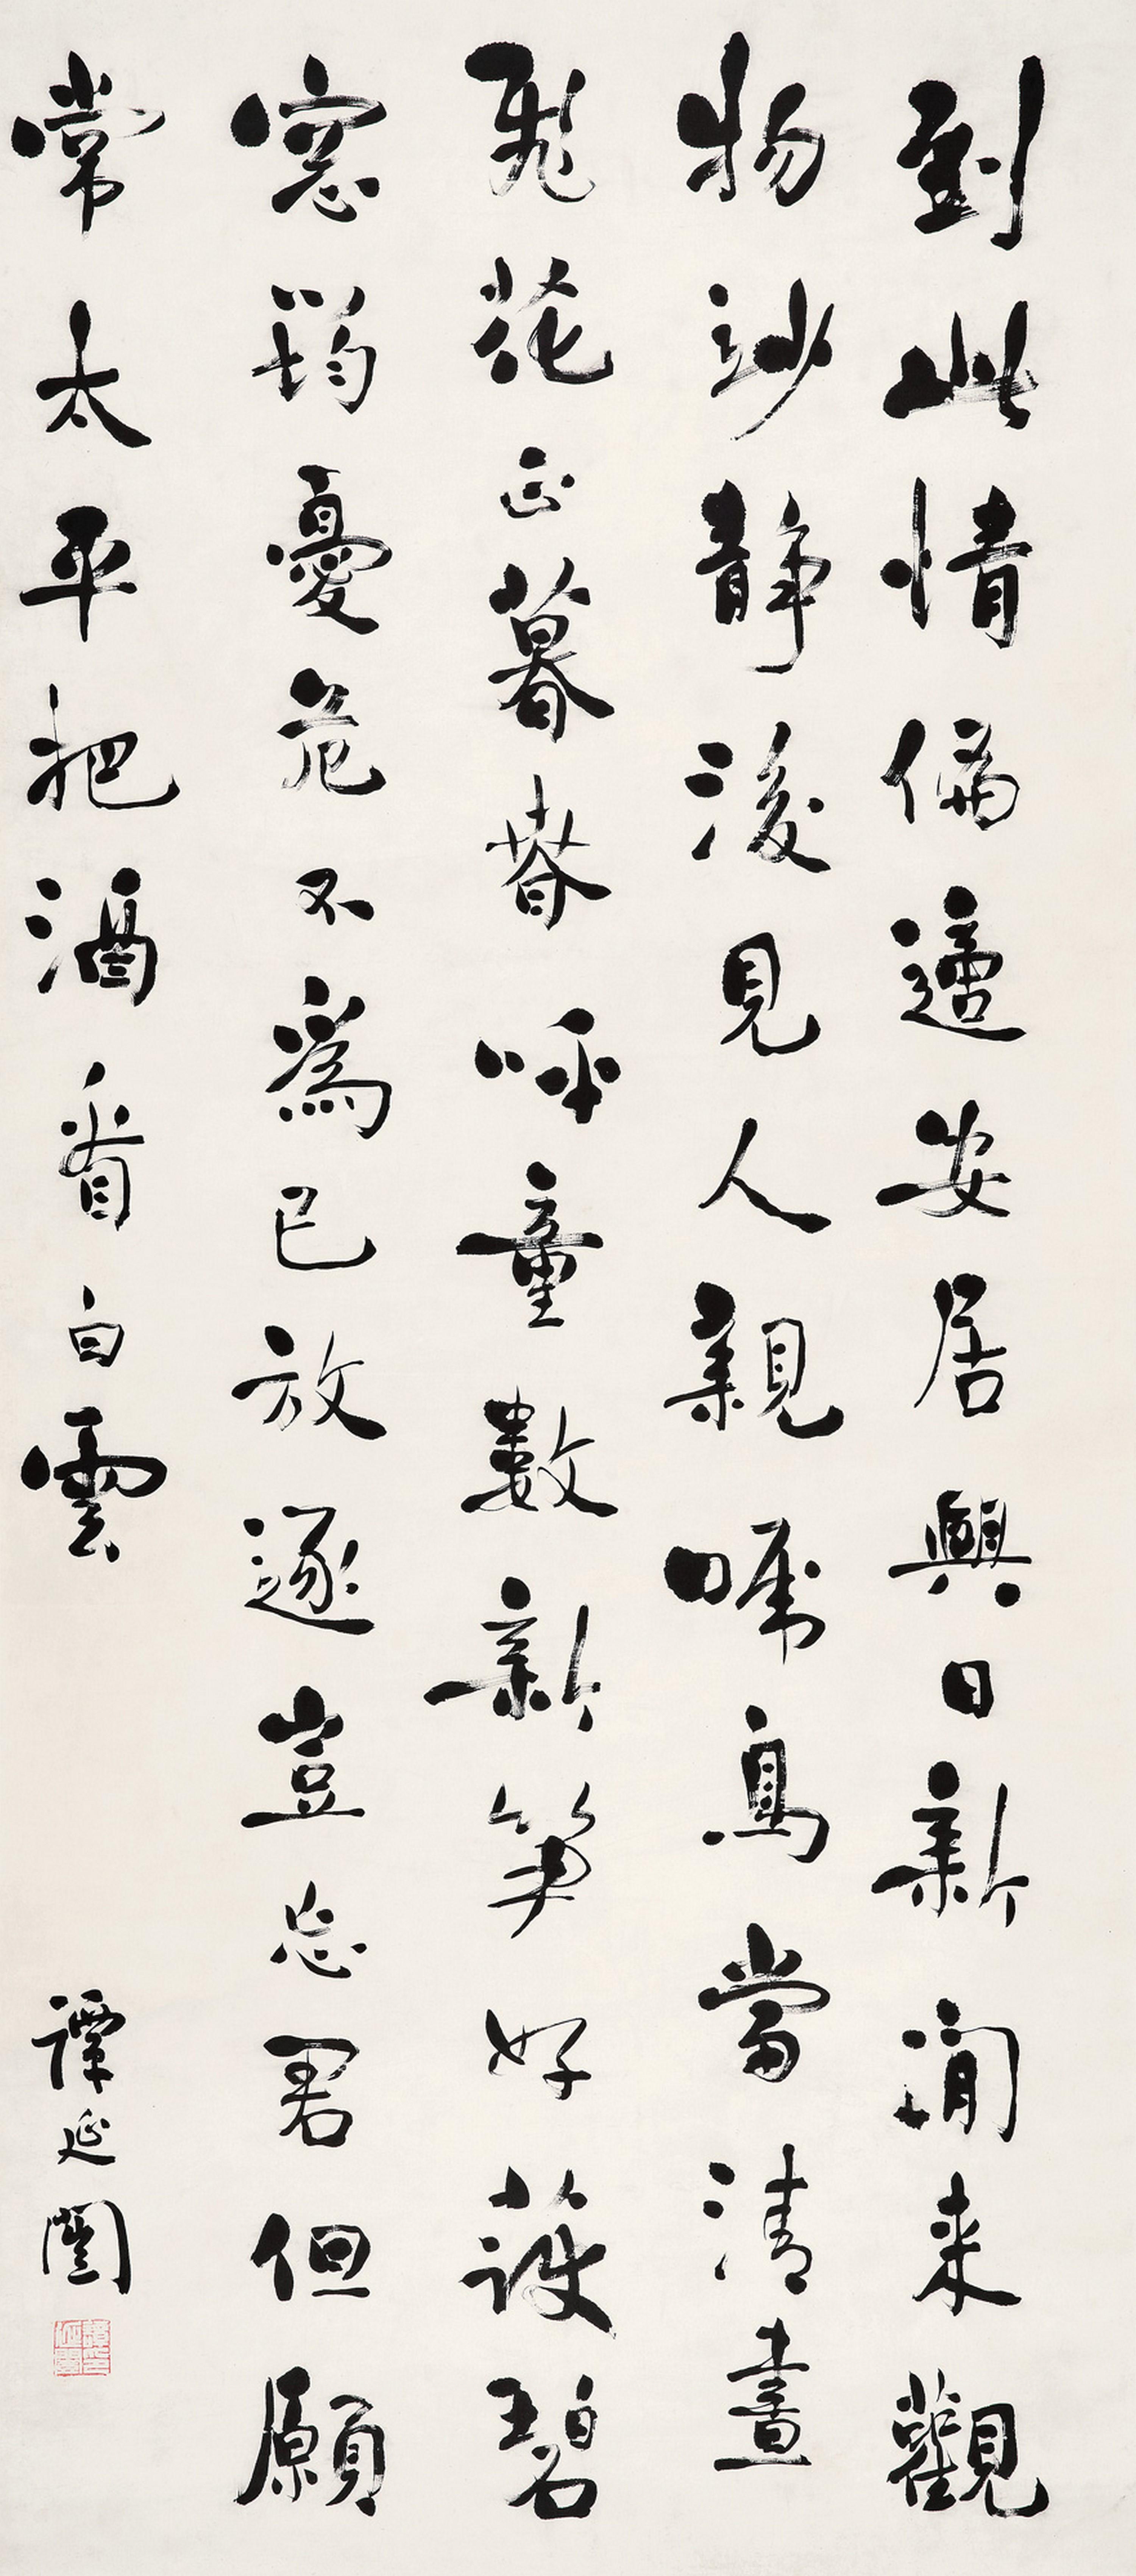 到此情偏適安居興日新閒来觀
物妙靜後見人親啼鳥當清晝
飛花正暮春呼童數新笋好護碧
窓筠憂危不爲己放逐豈忘君但願
常太平把酒看白雲
譚延闓